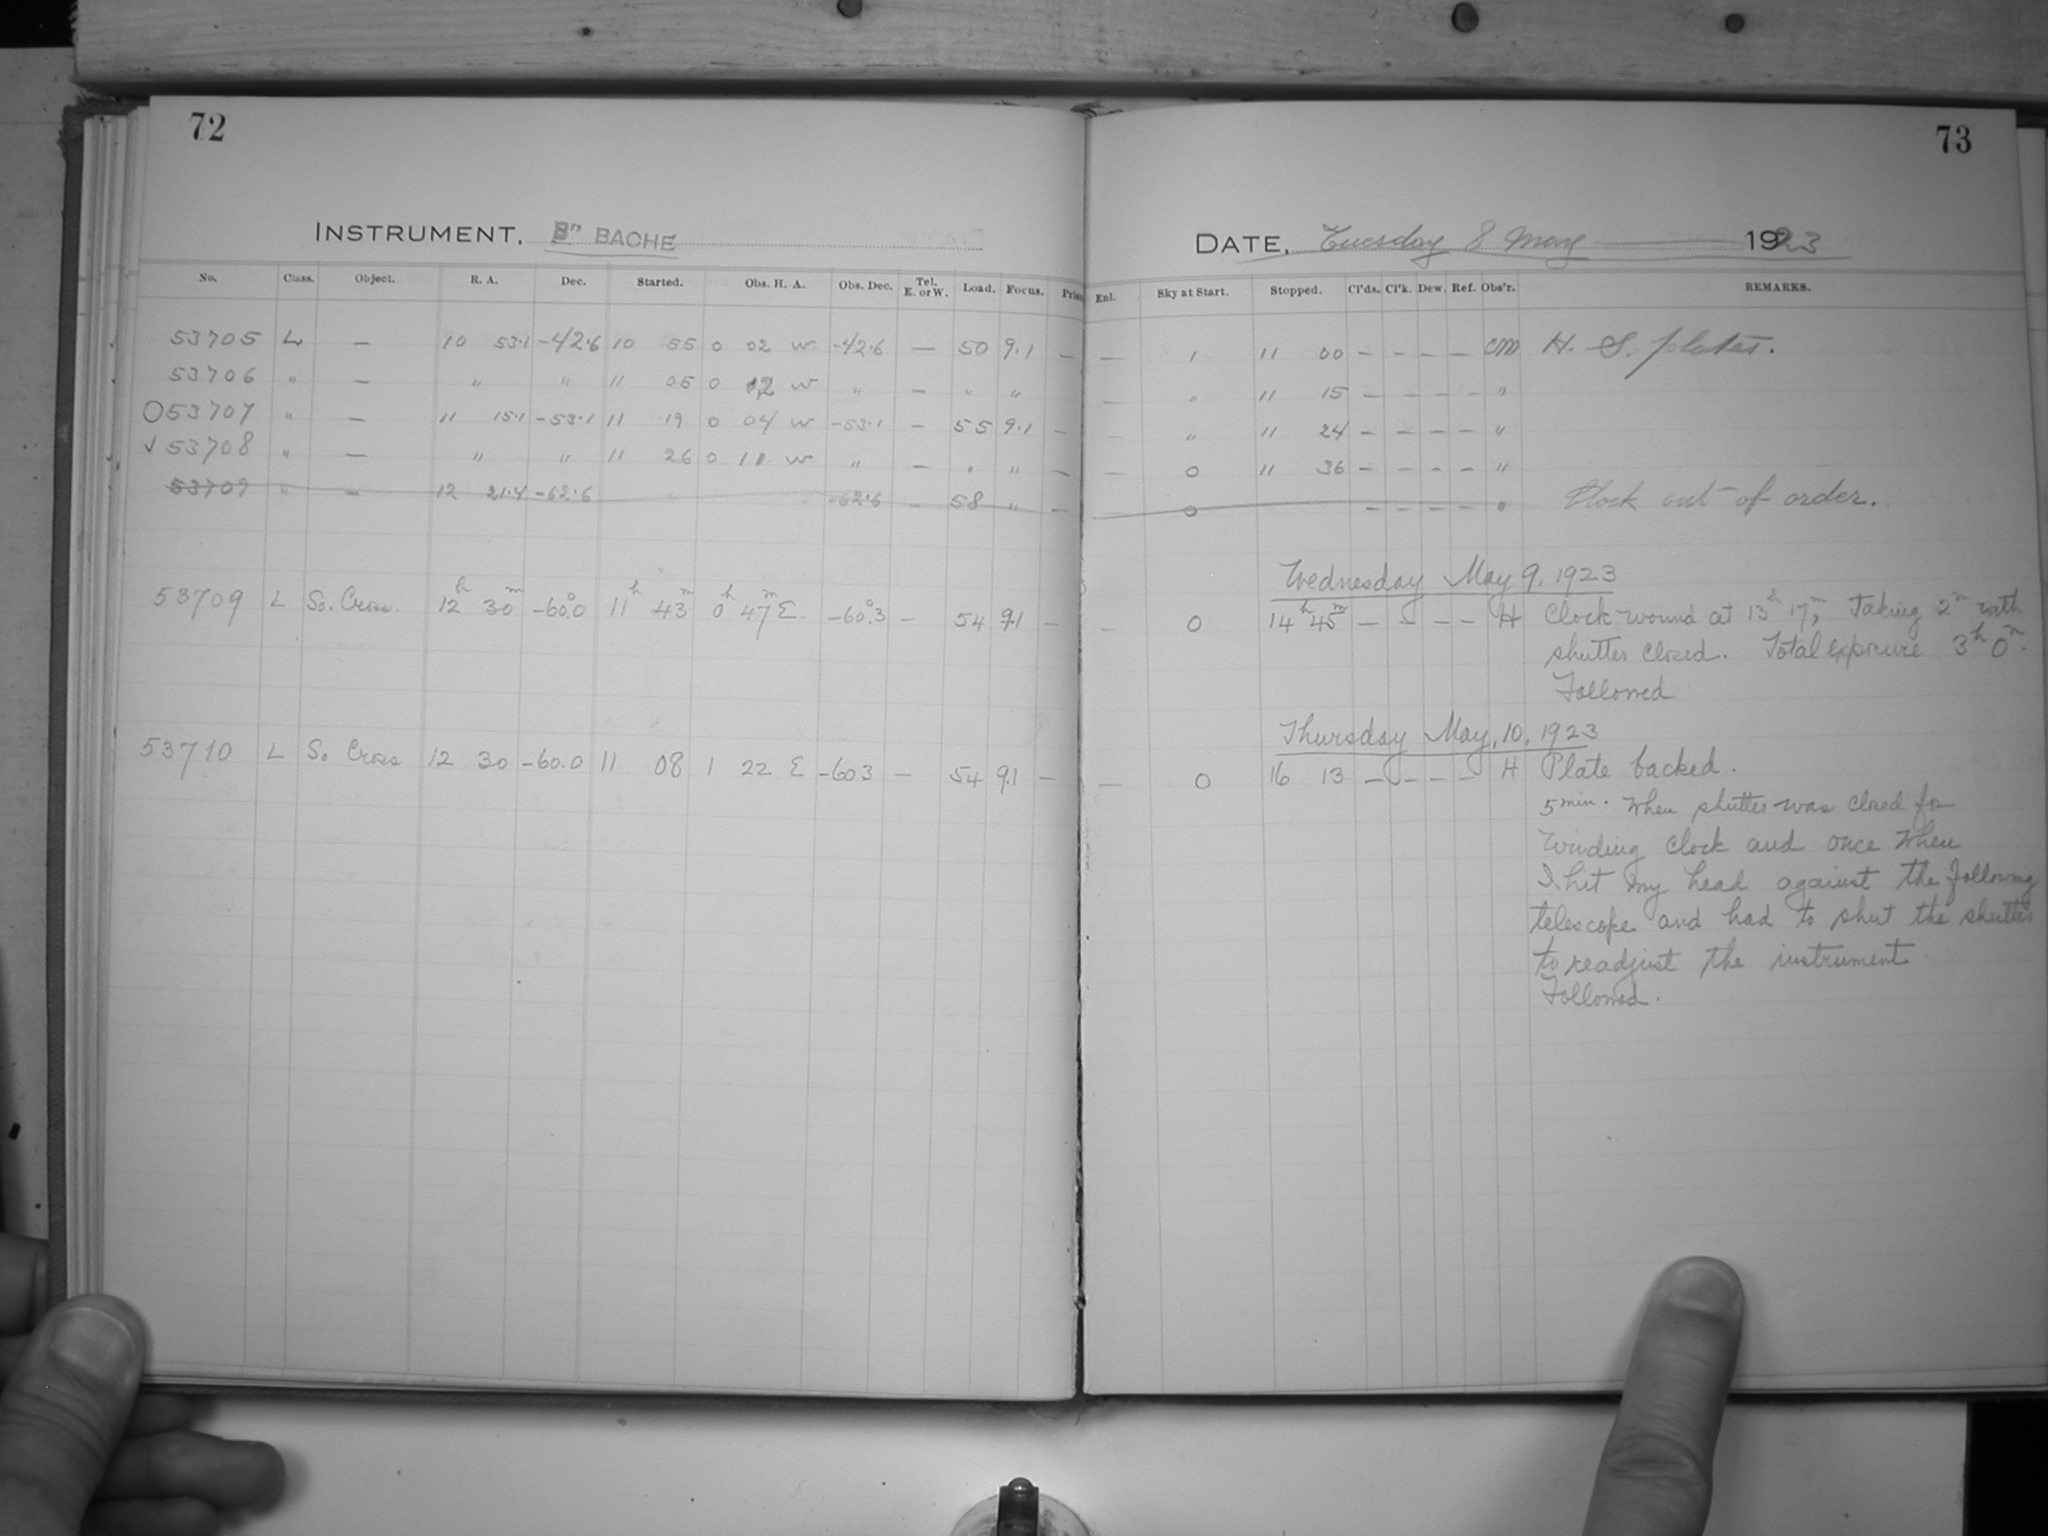 72
INSTRUMENT. 8" BACHE
No. Class. Object. R. A. Dec. Started. Obs. H. A. Obs. Dec. Tel. E. or W. Load. Focus.
53705 L — 10 53.1 -42.6 10 55 0 02 W -42.6 — 50 9.1 —
53706 " — " " 11 05 0 12 W " — " "
O 53707 " — 11 15.1 -53.1 11 19 0 04 W -53.1 — 55 9.1 —
✓ 53708 " — " " 11 26 0 11 W " — " " —
53709 " — 12 21.4 -62.6 -62.6 — 58 " —
53709 L So. Cross. 12h 30m -60.°0 11h 43m 0h 47m E -60.°3 — 54 9.1 —
53710 L So Cross 12 30 -60.0 11 08 1 22 E -60.3 — 54 9.1 —
73
DATE, Tuesday 8 May 1923
Enl. Sky at Start. Stopped. Cl'ds. Cl'k. Dew. Ref. Obs'r. REMARKS.
— 1 11 00 – – – – CM H. S. plates.
— " 11 15 – – – – "
— " 11 24 – – – – "
— 0 11 36 – – – – "
— 0 – – – – " Clock out of order.
Wednesday May 9, 1923
— 0 14h 45m — – – – H Clock wound at 13h 17m, Taking 2m with
shutter closed. Total exposure 3h 0m.
Followed
Thursday May, 10, 1923
— 0 16 13 – – – – H Plate backed.
5 min. When shutter was closed for
winding clock and once when
I hit my head against the following
telescope and had to shut the shutter
to readjust the instrument
Followed.